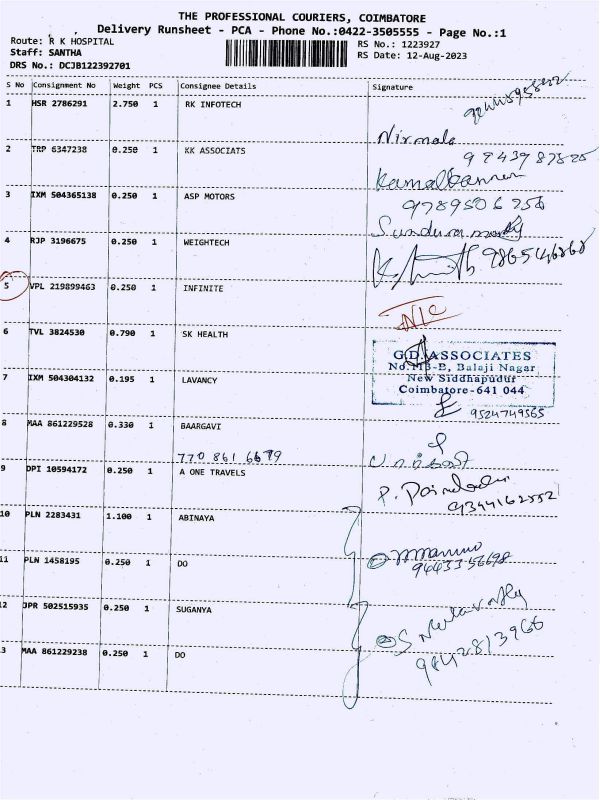 THE PROFESSIONAL COURIERS, COIMBATORE
Delivery Runsheet - PCA - Phone No.:0422-3505555 - Page No.:1
Route: R K HOSPITAL
Staff: SANTHA
DRS No.: DCJB122392701
RS No.: 1223927
RS Date: 12-Aug-2023
S No Consignment No Weight PCS Consignee Details Signature
1 HSR 2786291 2.750 1 RK INFOTECH
Nirmala
2 TRP 6347238 0.250 1 KK ASSOCIATS
Kamalkannan
3 IXM 504365138 0.250 1 ASP MOTORS
9789506756
4 RJP 3196675 0.250 1 WEIGHTECH
5 VPL 219899463 0.250 1 INFINITE
N/C
6 TVL 3824530 0.790 1 SK HEALTH
G.D. ASSOCIATES
No.11B-E, Balaji Nagar
New Siddhapudur
Coimbatore-641 044
7 IXM 504304132 0.195 1 LAVANCY
9524749565
8 MAA 861229528 0.330 1 BAARGAVI
770 861 6679
9 DPI 10594172 0.250 1 A ONE TRAVELS
9344162552
10 PLN 2283431 1.100 1 ABINAYA
11 PLN 1458195 0.250 1 DO
9443356698
12 JPR 502515935 0.250 1 SUGANYA
9842813966
13 MAA 861229238 0.250 1 DO